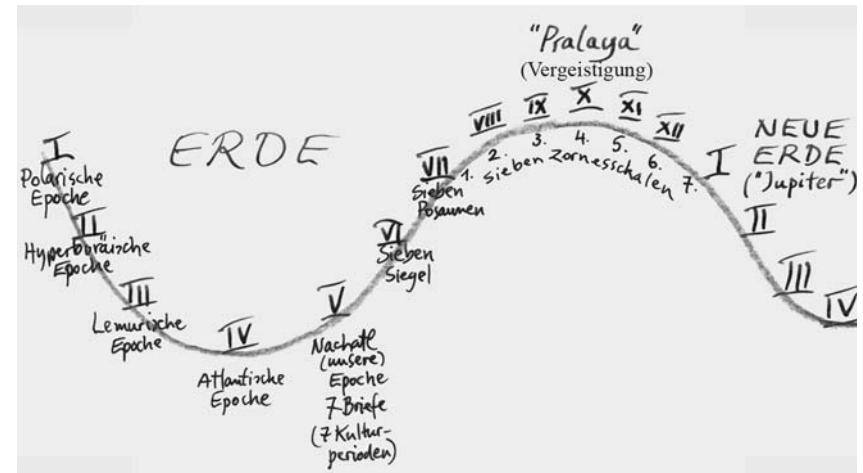 "Pralaya"
(Vergeistigung)
ERDE
NEUE
ERDE
("Jupiter")
I
Polarische
Epoche
II
Hyperboräische
Epoche
III
Lemurische
Epoche
IV
Atlantische
Epoche
V
Nachatl
(unsere)
Epoche
7 Briefe
(7 Kultur-
perioden)
VI
Sieben
Siegel
VII
Sieben
Posaunen
VIII
IX
X
XI
XII
1. 2. 3. 4. 5. 6. 7.
Sieben Zornesschalen
I
II
III
IV